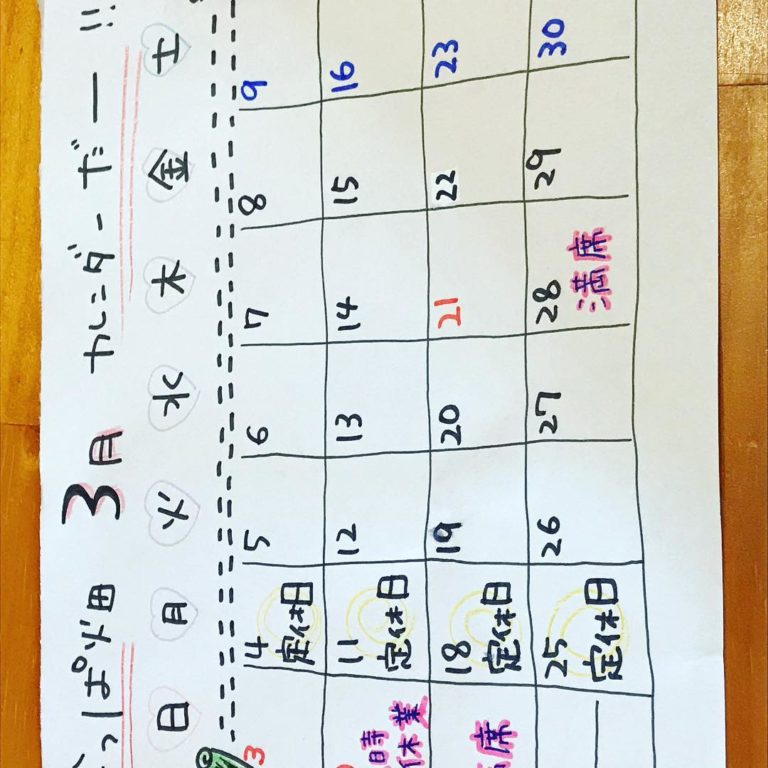 っぱ畑 3月 カレンダーだー!!
日 月 火 水 木 金 土
3 4 5 6 7 8 9
定休日
11 12 13 14 15 16
時
休業 定休日
18 19 20 21 22 23
席 定休日
25 26 27 28 29 30
定休日 満席